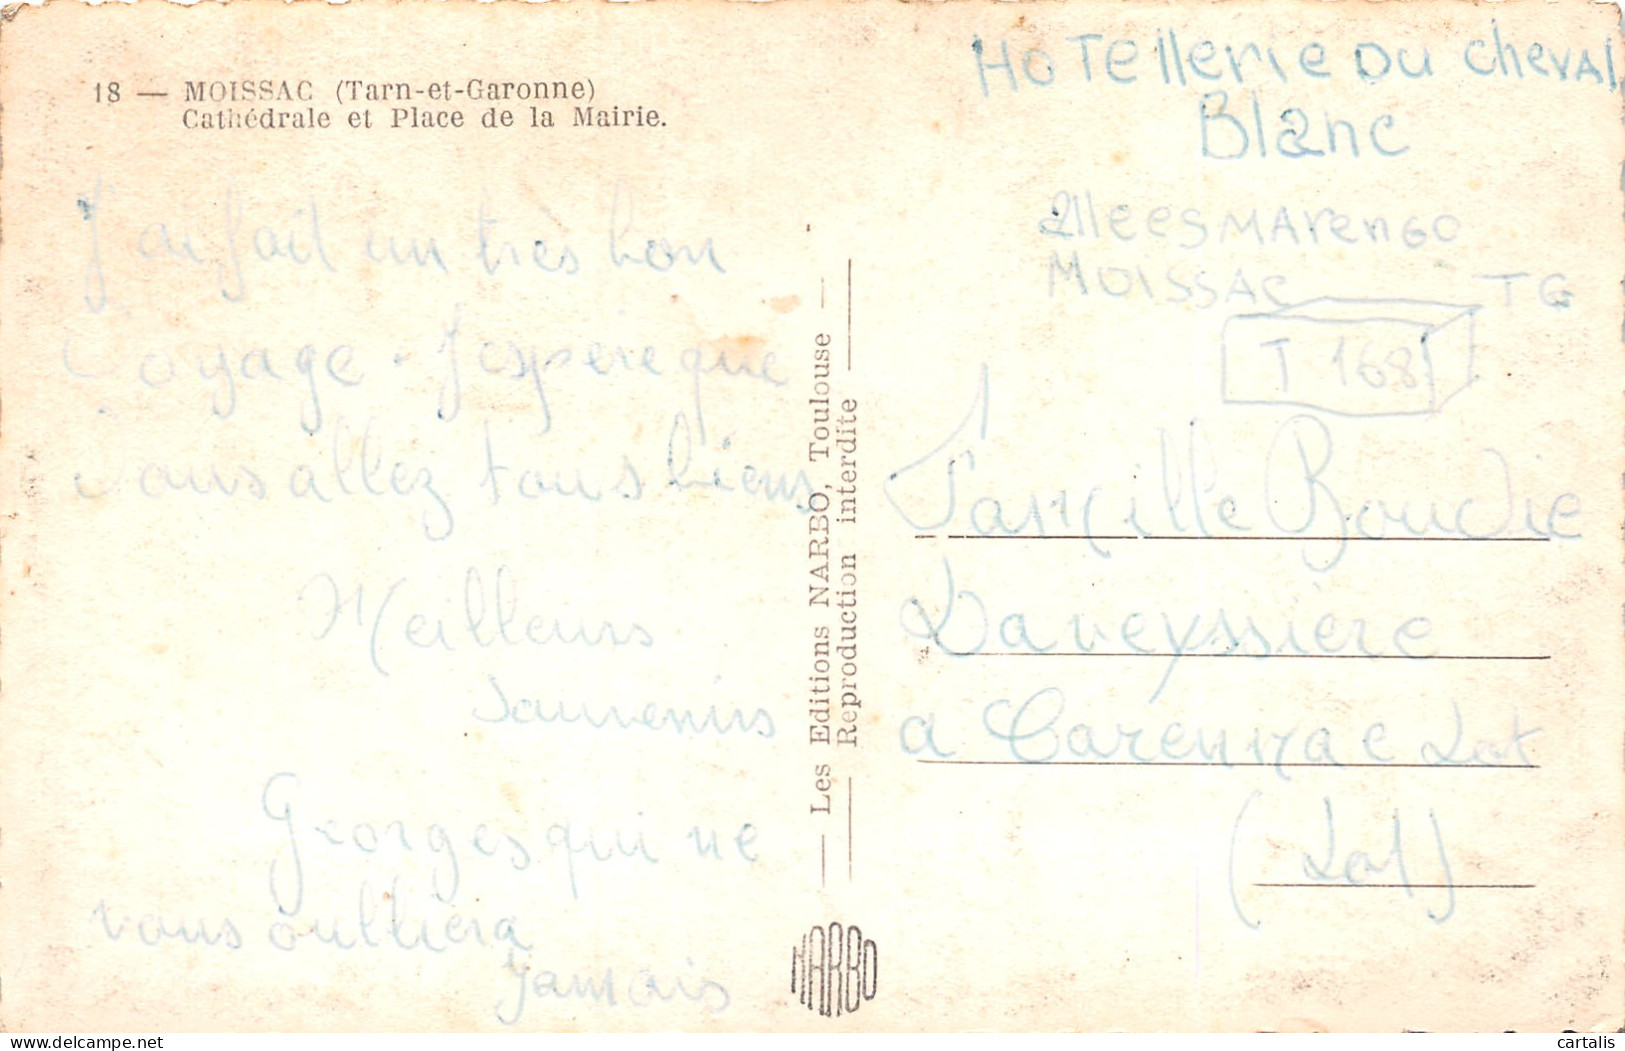 18 — MOISSAC (Tarn-et-Garonne)
Cathédrale et Place de la Mairie.
J'ai fait un très bon
voyage - J'espère que
vous allez tous biens
Meilleurs
Souvenirs
Georges qui ne
vous oulliera
Jamais
Les Editions NARBO, Toulouse
Reproduction interdite
NARBO
HoTellerie Du cheval
Blanc
allees MArenGo
MOISSAC TG
T 168
Famille Boudie
Laveyssière
a Carennac Lot
(Lot)
cartalis